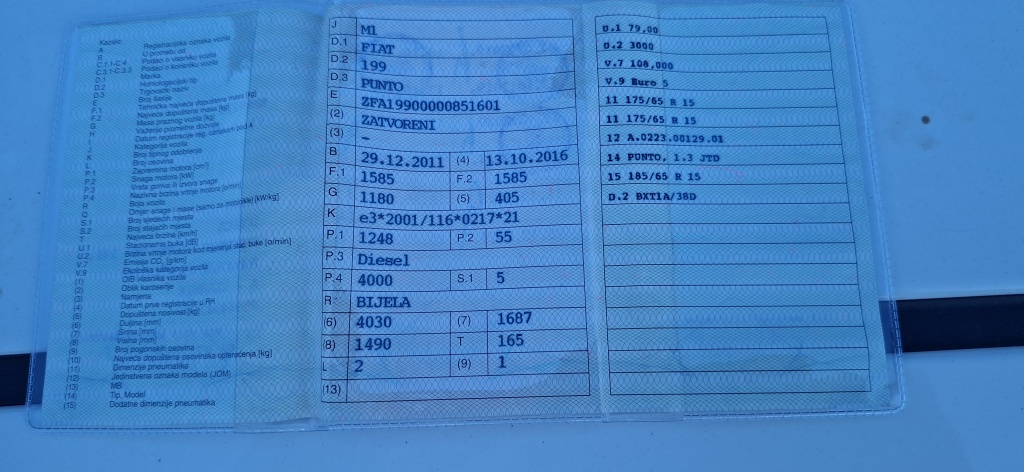 Kazalo:
A Registracijska oznaka vozila
B U prometu od
C.1.1-C.4 Podaci o vlasniku vozila
C.3.1-C.3.3 Podaci o korisniku vozila
D.1 Marka
D.2 Homologacijski tip
D.3 Trgovački naziv
E Broj šasije
F.1 Tehnička najveća dopuštena masa [kg]
F.2 Najveća dopuštena masa [kg]
G Masa praznog vozila [kg]
H Važenje prometne dozvole
I Datum registracije reg. oznakom pod A
J Kategorija vozila
K Broj tipnog odobrenja
L Broj osovina
P.1 Zapremina motora [cm³]
P.2 Snaga motora [kW]
P.3 Vrsta goriva ili izvora snage
P.4 Nazivna brzina vrtnje motora [o/min]
R Boja vozila
Q Omjer snage i mase (samo za motocikle) [kW/kg]
S.1 Broj sjedećih mjesta
S.2 Broj stajaćih mjesta
T Najveća brzina [km/h]
U.1 Stacionarna buka [dB]
U.2 Brzina vrtnje motora kod mjerenja stac. buke [o/min]
V.7 Emisija CO₂ [g/km]
V.9 Ekološka kategorija vozila
(1) OIB vlasnika vozila
(2) Oblik karoserije
(3) Namjena
(4) Datum prve registracije u RH
(5) Dopuštena nosivost [kg]
(6) Duljina [mm]
(7) Širina [mm]
(8) Visina [mm]
(9) Broj pogonskih osovina
(10) Najveća dopuštena osovinska opterećenja [kg]
(11) Dimenzije pneumatika
(12) Jedinstvena oznaka modela (JOM)
(13) MB
(14) Tip, Model
(15) Dodatne dimenzije pneumatika
J M1
D.1 FIAT
D.2 199
D.3 PUNTO
E ZFA19900000851601
(2) ZATVORENI
(3) –
B 29.12.2011 (4) 13.10.2016
F.1 1585 F.2 1585
G 1180 (5) 405
K e3*2001/116*0217*21
P.1 1248 P.2 55
P.3 Diesel
P.4 4000 S.1 5
R BIJELA
(6) 4030 (7) 1687
(8) 1490 T 165
L 2 (9) 1
(13)
U.1 79,00
U.2 3000
V.7 108,000
V.9 Euro 5
11 175/65 R 15
11 175/65 R 15
12 A.0223.00129.01
14 PUNTO, 1.3 JTD
15 185/65 R 15
D.2 BXT1A/38D